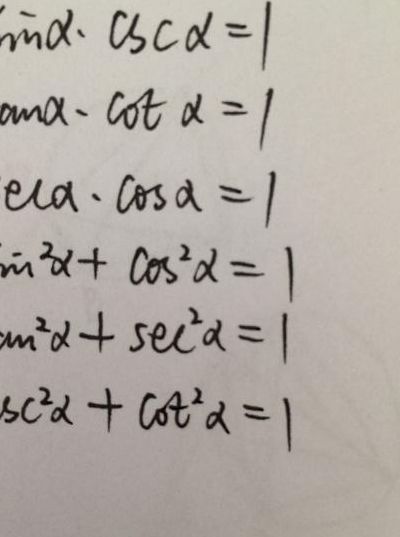 sinα · cscα = 1
tanα · cot α = 1
secα · cosα = 1
sin²α + cos²α = 1
tan²α + sec²α = 1
csc²α + cot²α = 1